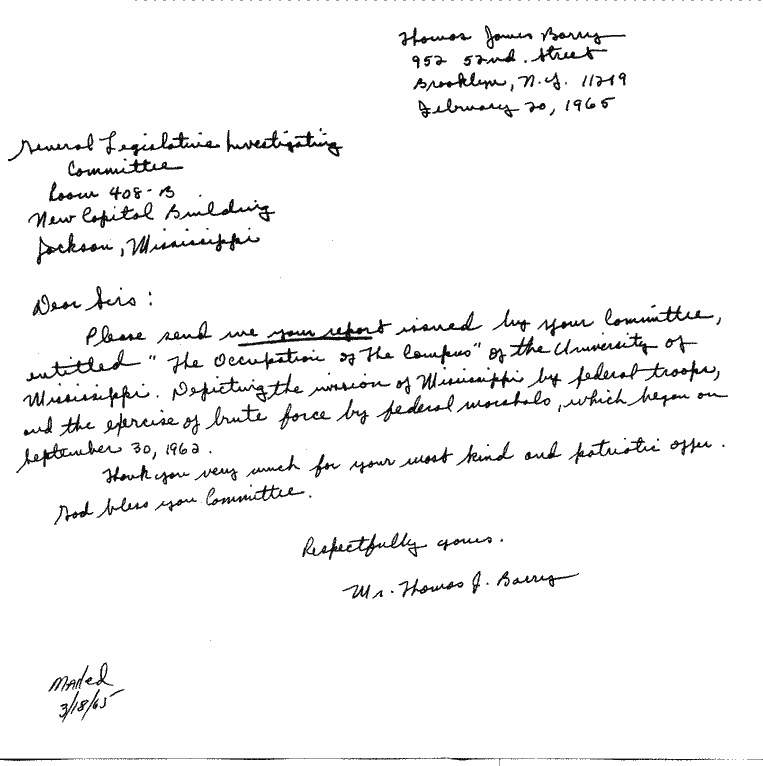 Thomas James Barry
952 52nd. Street
Brooklyn, N.Y. 11219
February 20, 1965
General Legislative Investigating
Committee
Room 408-B
New Capitol Building
Jackson, Mississippi
Dear Sirs:
Please send me your report issued by your Committee,
entitled "The Occupation of The Campus" of the University of
Mississippi. Depicting the invasion of Mississippi by federal troops,
and the exercise of brute force by federal marshals, which began on
September 30, 1962.
Thank you very much for your most kind and patriotic offer.
God bless you Committee.
Respectfully yours.
Mr. Thomas J. Barry
Mailed
3/18/65